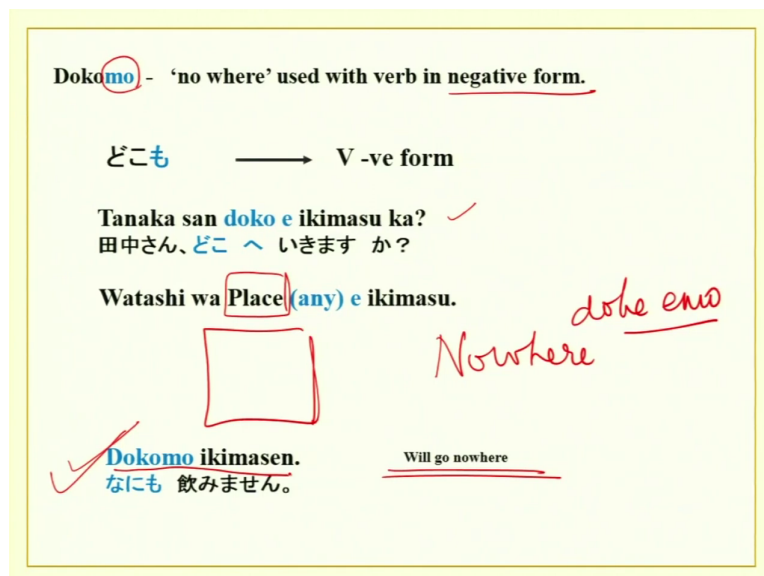 Dokomo - ‘no where’ used with verb in negative form.
どこも → V -ve form
Tanaka san doko e ikimasu ka?
田中さん、どこ へ いきます か？
Watashi wa Place (any) e ikimasu.
doke emo
Nowhere
Dokomo ikimasen. Will go nowhere
なにも 飲みません。